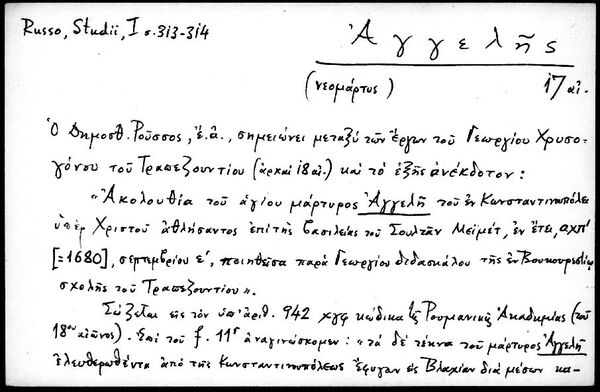 Russo, Studii, I σ. 313-314
Ἀγγελῆς
(νεομάρτυς) 17 αἰ.
Ὁ Δημοσθ. Ροῦσσος, ἔ.ἀ., σημειώνει μεταξὺ τῶν ἔργων τοῦ Γεωργίου Χρυσο-
γόνου τοῦ Τραπεζουντίου (ἀρχαὶ 18 αἰ.) καὶ τὸ ἑξῆς ἀνέκδοτον:
"Ἀκολουθία τοῦ ἁγίου μάρτυρος Ἀγγελῆ τοῦ ἐν Κωνσταντινουπόλει
ὑπὲρ Χριστοῦ ἀθλήσαντος ἐπὶ τῆς βασιλείας τοῦ Σουλτὰν Μεϊμέτ, ἐν ἔτει, αχπ'
[=1680], σεπτεμβρίου ε', ποιηθεῖσα παρὰ Γεωργίου διδασκάλου τῆς ἐν Βουκουρεστίῳ
σχολῆς τοῦ Τραπεζουντίου".
Σώζεται εἰς τὸν ὑπ' ἀριθ. 942 χγφ κώδικα τῆς Ρουμανικῆς Ἀκαδημίας (τοῦ
18ου αἰῶνος). Ἐπὶ τοῦ f. 11r ἀναγινώσκομεν: "τὰ δὲ τέκνα τοῦ μάρτυρος Ἀγγελῆ
ἐλευθερωθέντα ἀπὸ τῆς Κωνσταντινουπόλεως ἔφυγαν εἰς Βλαχίαν διὰ μέσων κα-